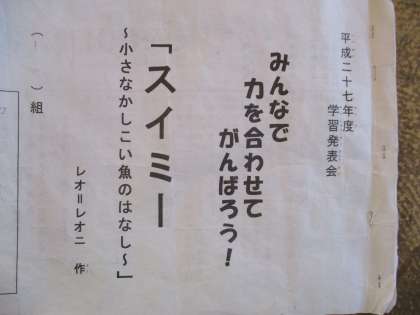 平成二十七年度
学習発表会
みんなで
力を合わせて
がんばろう！
「スイミー
～小さなかしこい魚のはなし～」
レオ＝レオニ　作
（　　）組